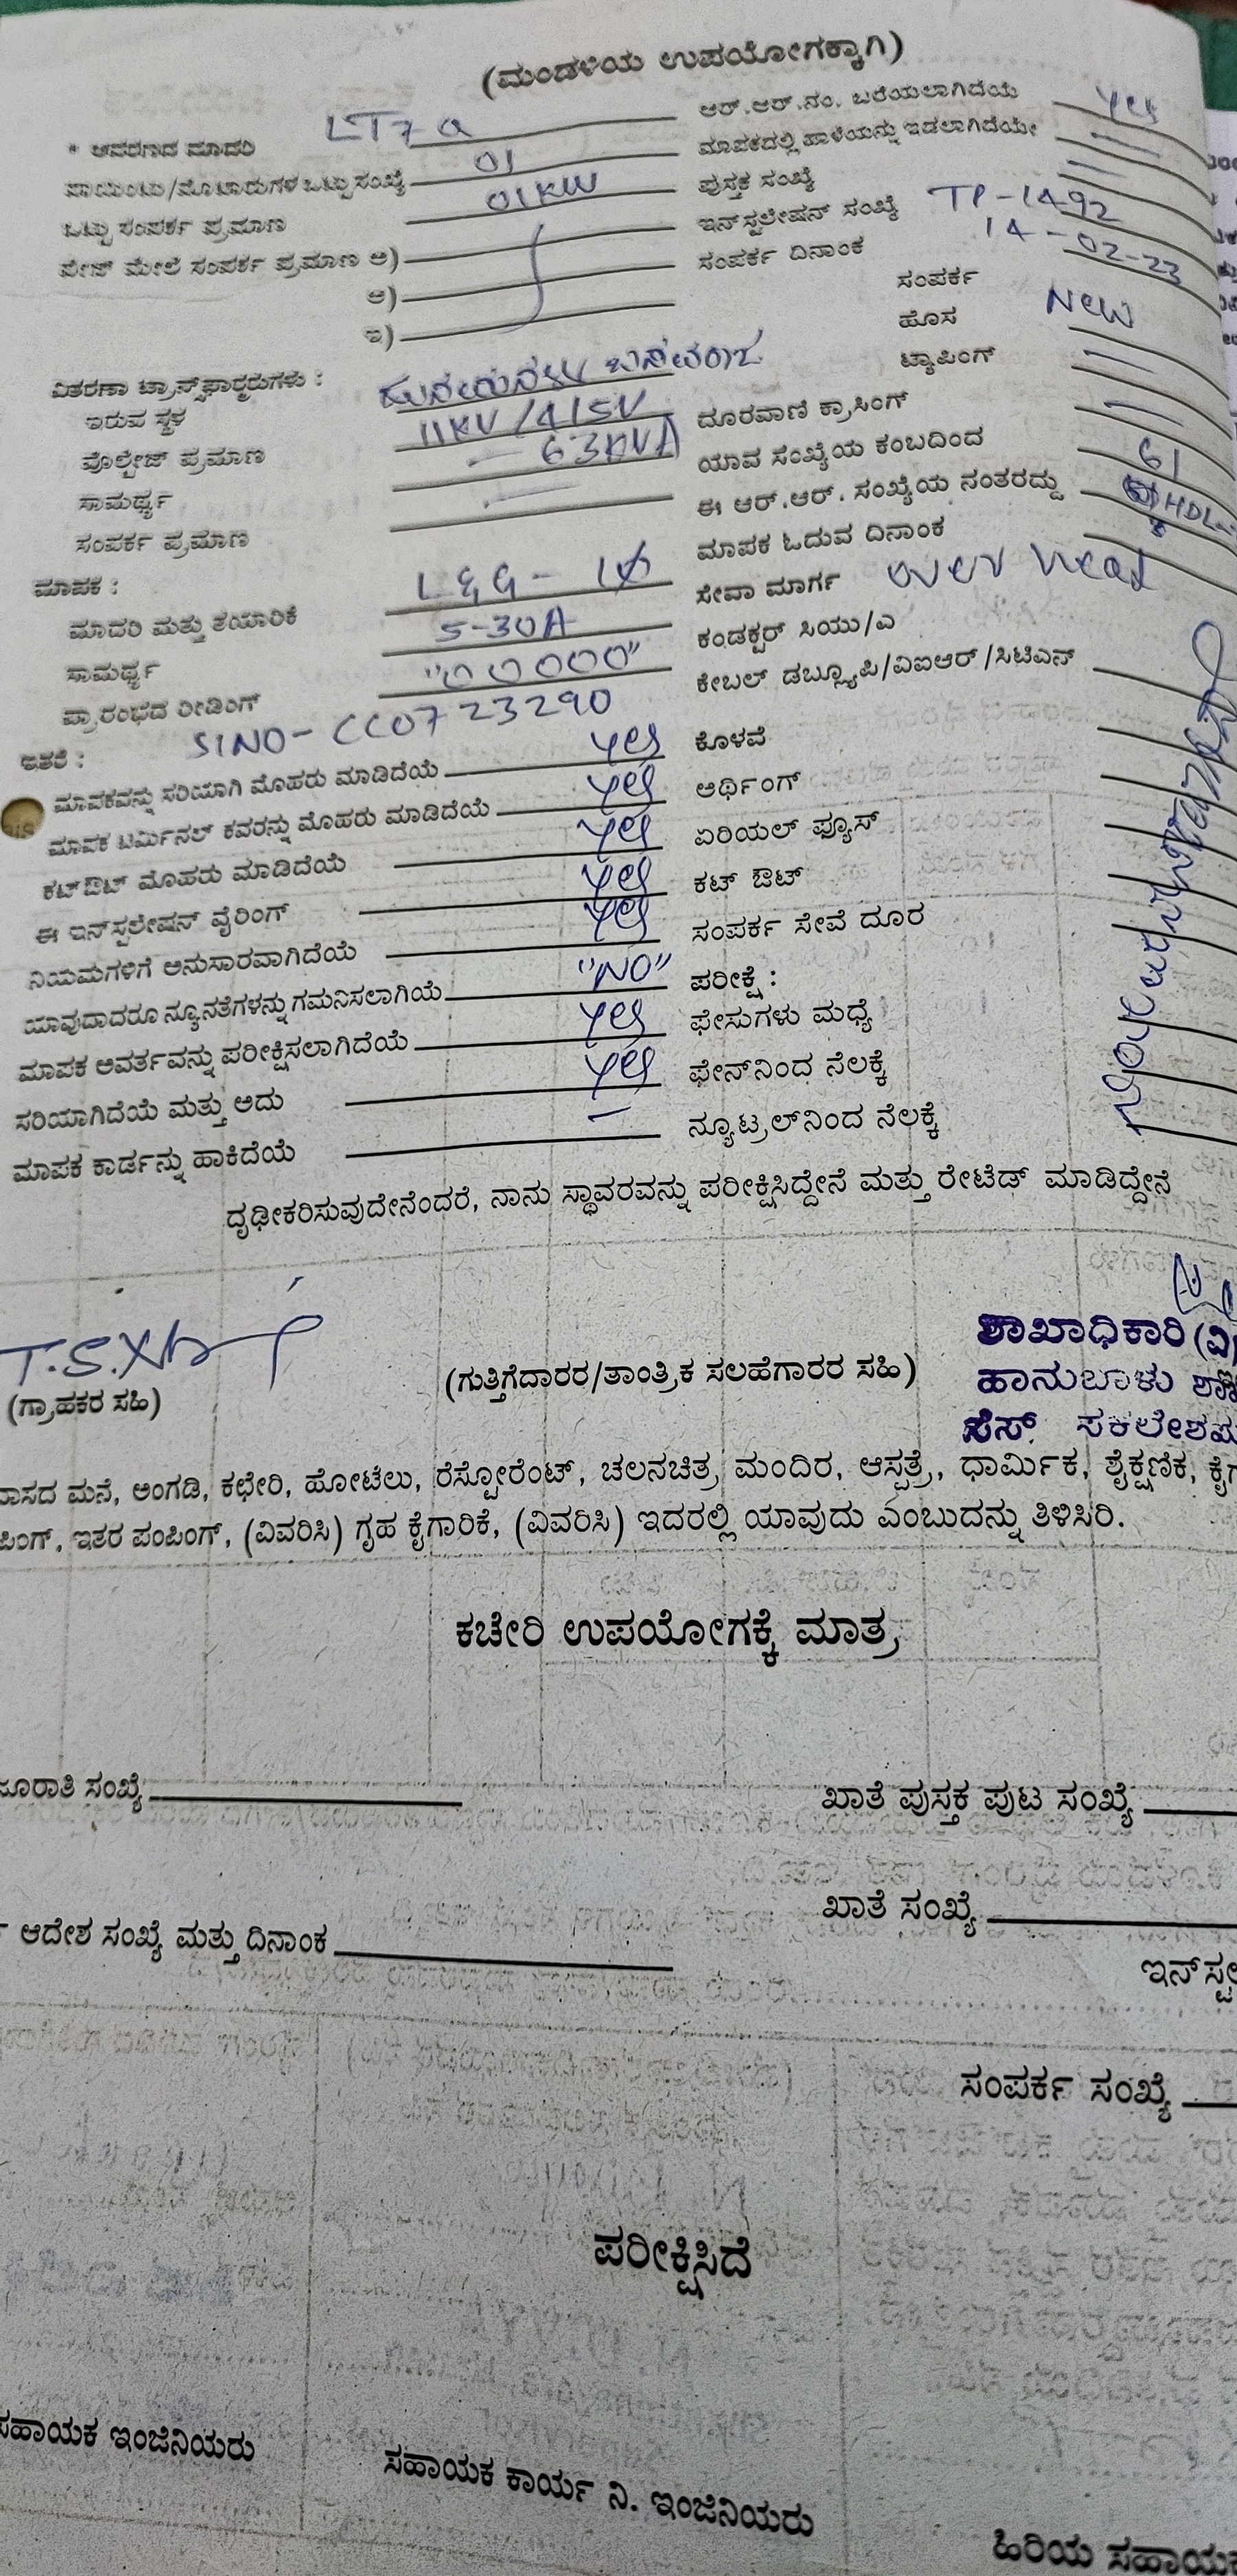 (ಮಂಡಳಿಯ ಉಪಯೋಗಕ್ಕಾಗಿ)
* ಆವರಣದ ಮಾದರಿ LT7a
ಪಾಯಿಂಟು/ಮೋಟಾರುಗಳ ಒಟ್ಟು ಸಂಖ್ಯೆ 01
ಒಟ್ಟು ಸಂಪರ್ಕ ಪ್ರಮಾಣ 01KW
ಪೇಜ್ ಮೇಲೆ ಸಂಪರ್ಕ ಪ್ರಮಾಣ ಅ)
ಆ)
ಇ)
ವಿತರಣಾ ಟ್ರಾನ್ಸ್‌ಫಾರ್ಮರುಗಳು :
ಇರುವ ಸ್ಥಳ
ವೊಲ್ಟೇಜ್ ಪ್ರಮಾಣ 11KV/415V
ಸಾಮರ್ಥ್ಯ 63KVA
ಸಂಪರ್ಕ ಪ್ರಮಾಣ —
ಮಾಪಕ :
ಮಾದರಿ ಮತ್ತು ತಯಾರಿಕೆ L&G - 1Ø
ಸಾಮರ್ಥ್ಯ 5-30A
ಪ್ರಾರಂಭದ ರೀಡಿಂಗ್ "00000"
ಇತರೆ : SINO- CC0723290
ಮಾಪಕವನ್ನು ಸರಿಯಾಗಿ ಮೊಹರು ಮಾಡಿದೆಯೆ yes
ಮಾಪಕ ಟರ್ಮಿನಲ್ ಕವರನ್ನು ಮೊಹರು ಮಾಡಿದೆಯೆ yes
ಕಟ್‌ಔಟ್ ಮೊಹರು ಮಾಡಿದೆಯೆ yes
ಈ ಇನ್‌ಸ್ಟಲೇಷನ್ ವೈರಿಂಗ್ yes
ನಿಯಮಗಳಿಗೆ ಅನುಸಾರವಾಗಿದೆಯೆ yes
ಯಾವುದಾದರೂ ನ್ಯೂನತೆಗಳನ್ನು ಗಮನಿಸಲಾಗಿಯೆ "NO"
ಮಾಪಕ ಆವರ್ತವನ್ನು ಪರೀಕ್ಷಿಸಲಾಗಿದೆಯೆ yes
ಸರಿಯಾಗಿದೆಯೆ ಮತ್ತು ಅದು yes
ಮಾಪಕ ಕಾರ್ಡನ್ನು ಹಾಕಿದೆಯೆ —
ಆರ್.ಆರ್.ನಂ. ಬರೆಯಲಾಗಿದೆಯೆ yes
ಮಾಪಕದಲ್ಲಿ ಹಾಳೆಯನ್ನು ಇಡಲಾಗಿದೆಯೇ —
ಪುಸ್ತಕ ಸಂಖ್ಯೆ —
ಇನ್‌ಸ್ಟಲೇಷನ್ ಸಂಖ್ಯೆ TP-1492
ಸಂಪರ್ಕ ದಿನಾಂಕ 14-02-23
ಸಂಪರ್ಕ
ಹೊಸ New
ಟ್ಯಾಪಿಂಗ್ —
ದೂರವಾಣಿ ಕ್ರಾಸಿಂಗ್ —
ಯಾವ ಸಂಖ್ಯೆಯ ಕಂಬದಿಂದ 61
ಈ ಆರ್.ಆರ್. ಸಂಖ್ಯೆಯ ನಂತರದ್ದು HDL-
ಮಾಪಕ ಓದುವ ದಿನಾಂಕ
ಸೇವಾ ಮಾರ್ಗ over head
ಕಂಡಕ್ಟರ್ ಸಿಯು/ಎ
ಕೇಬಲ್ ಡಬ್ಲ್ಯೂಪಿ/ವಿಐಆರ್/ಸಿಟಿಎಸ್
ಕೊಳವೆ
ಅರ್ಥಿಂಗ್
ಏರಿಯಲ್ ಫ್ಯೂಸ್
ಕಟ್ ಔಟ್
ಸಂಪರ್ಕ ಸೇವೆ ದೂರ
ಪರೀಕ್ಷೆ :
ಫೇಸುಗಳು ಮಧ್ಯೆ
ಫೇಸ್‌ನಿಂದ ನೆಲಕ್ಕೆ
ನ್ಯೂಟ್ರಲ್‌ನಿಂದ ನೆಲಕ್ಕೆ
ದೃಢೀಕರಿಸುವುದೇನೆಂದರೆ, ನಾನು ಸ್ಥಾವರವನ್ನು ಪರೀಕ್ಷಿಸಿದ್ದೇನೆ ಮತ್ತು ರೇಟೆಡ್ ಮಾಡಿದ್ದೇನೆ
(ಗ್ರಾಹಕರ ಸಹಿ)
(ಗುತ್ತಿಗೆದಾರರ/ತಾಂತ್ರಿಕ ಸಲಹೆಗಾರರ ಸಹಿ)
ಶಾಖಾಧಿಕಾರಿ (ವಿ)
ಹಾನುಬಾಳು ಶಾಖೆ
ಸೆಸ್. ಸಕಲೇಶಪು
ವಾಸದ ಮನೆ, ಅಂಗಡಿ, ಕಛೇರಿ, ಹೋಟೆಲು, ರೆಸ್ಟೋರೆಂಟ್, ಚಲನಚಿತ್ರ ಮಂದಿರ, ಆಸ್ಪತ್ರೆ, ಧಾರ್ಮಿಕ, ಶೈಕ್ಷಣಿಕ, ಕೈಗ
ಪಿಂಗ್, ಇತರ ಪಂಪಿಂಗ್, (ವಿವರಿಸಿ) ಗೃಹ ಕೈಗಾರಿಕೆ, (ವಿವರಿಸಿ) ಇದರಲ್ಲಿ ಯಾವುದು ಎಂಬುದನ್ನು ತಿಳಿಸಿರಿ.
ಕಚೇರಿ ಉಪಯೋಗಕ್ಕೆ ಮಾತ್ರ
ಜೂರಾತಿ ಸಂಖ್ಯೆ
ಖಾತೆ ಪುಸ್ತಕ ಪುಟ ಸಂಖ್ಯೆ
ಆದೇಶ ಸಂಖ್ಯೆ ಮತ್ತು ದಿನಾಂಕ
ಖಾತೆ ಸಂಖ್ಯೆ
ಇನ್‌ಸ್ಟ
ಸಂಪರ್ಕ ಸಂಖ್ಯೆ
ಪರೀಕ್ಷಿಸಿದೆ
ಸಹಾಯಕ ಇಂಜಿನಿಯರು
ಸಹಾಯಕ ಕಾರ್ಯ ನಿ. ಇಂಜಿನಿಯರು
ಹಿರಿಯ ಸಹಾಯಕ